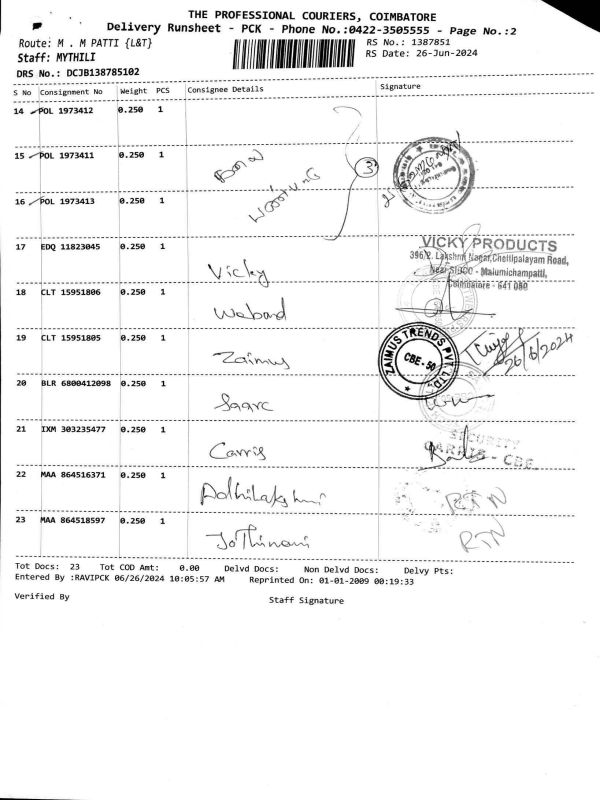 THE PROFESSIONAL COURIERS, COIMBATORE
Delivery Runsheet - PCK - Phone No.:0422-3505555 - Page No.:2
Route: M . M PATTI {L&T}
RS No.: 1387851
Staff: MYTHILI
RS Date: 26-Jun-2024
DRS No.: DCJB138785102
S No Consignment No Weight PCS Consignee Details Signature
14 POL 1973412 0.250 1
15 POL 1973411 0.250 1
3
16 POL 1973413 0.250 1
17 EDQ 11823045 0.250 1 Vicky
VICKY PRODUCTS
396/2, Lakshmi Nagar, Chettipalayam Road,
Near SIDCO - Malumichampatti,
Coimbatore - 641 050
18 CLT 15951806 0.250 1 Weband
19 CLT 15951805 0.250 1 Zaimus
ZAIMUS TRENDS PVT. LTD.
CBE - 50
26/6/2024
20 BLR 6800412098 0.250 1 Saarc
21 IXM 303235477 0.250 1 Carris
SECURITY
CARRIS - CBE.
22 MAA 864516371 0.250 1 Adhilakshmi RTN
23 MAA 864518597 0.250 1 Jothimani RTN
Tot Docs: 23 Tot COD Amt: 0.00 Delvd Docs: Non Delvd Docs: Delvy Pts:
Entered By :RAVIPCK 06/26/2024 10:05:57 AM Reprinted On: 01-01-2009 00:19:33
Verified By Staff Signature